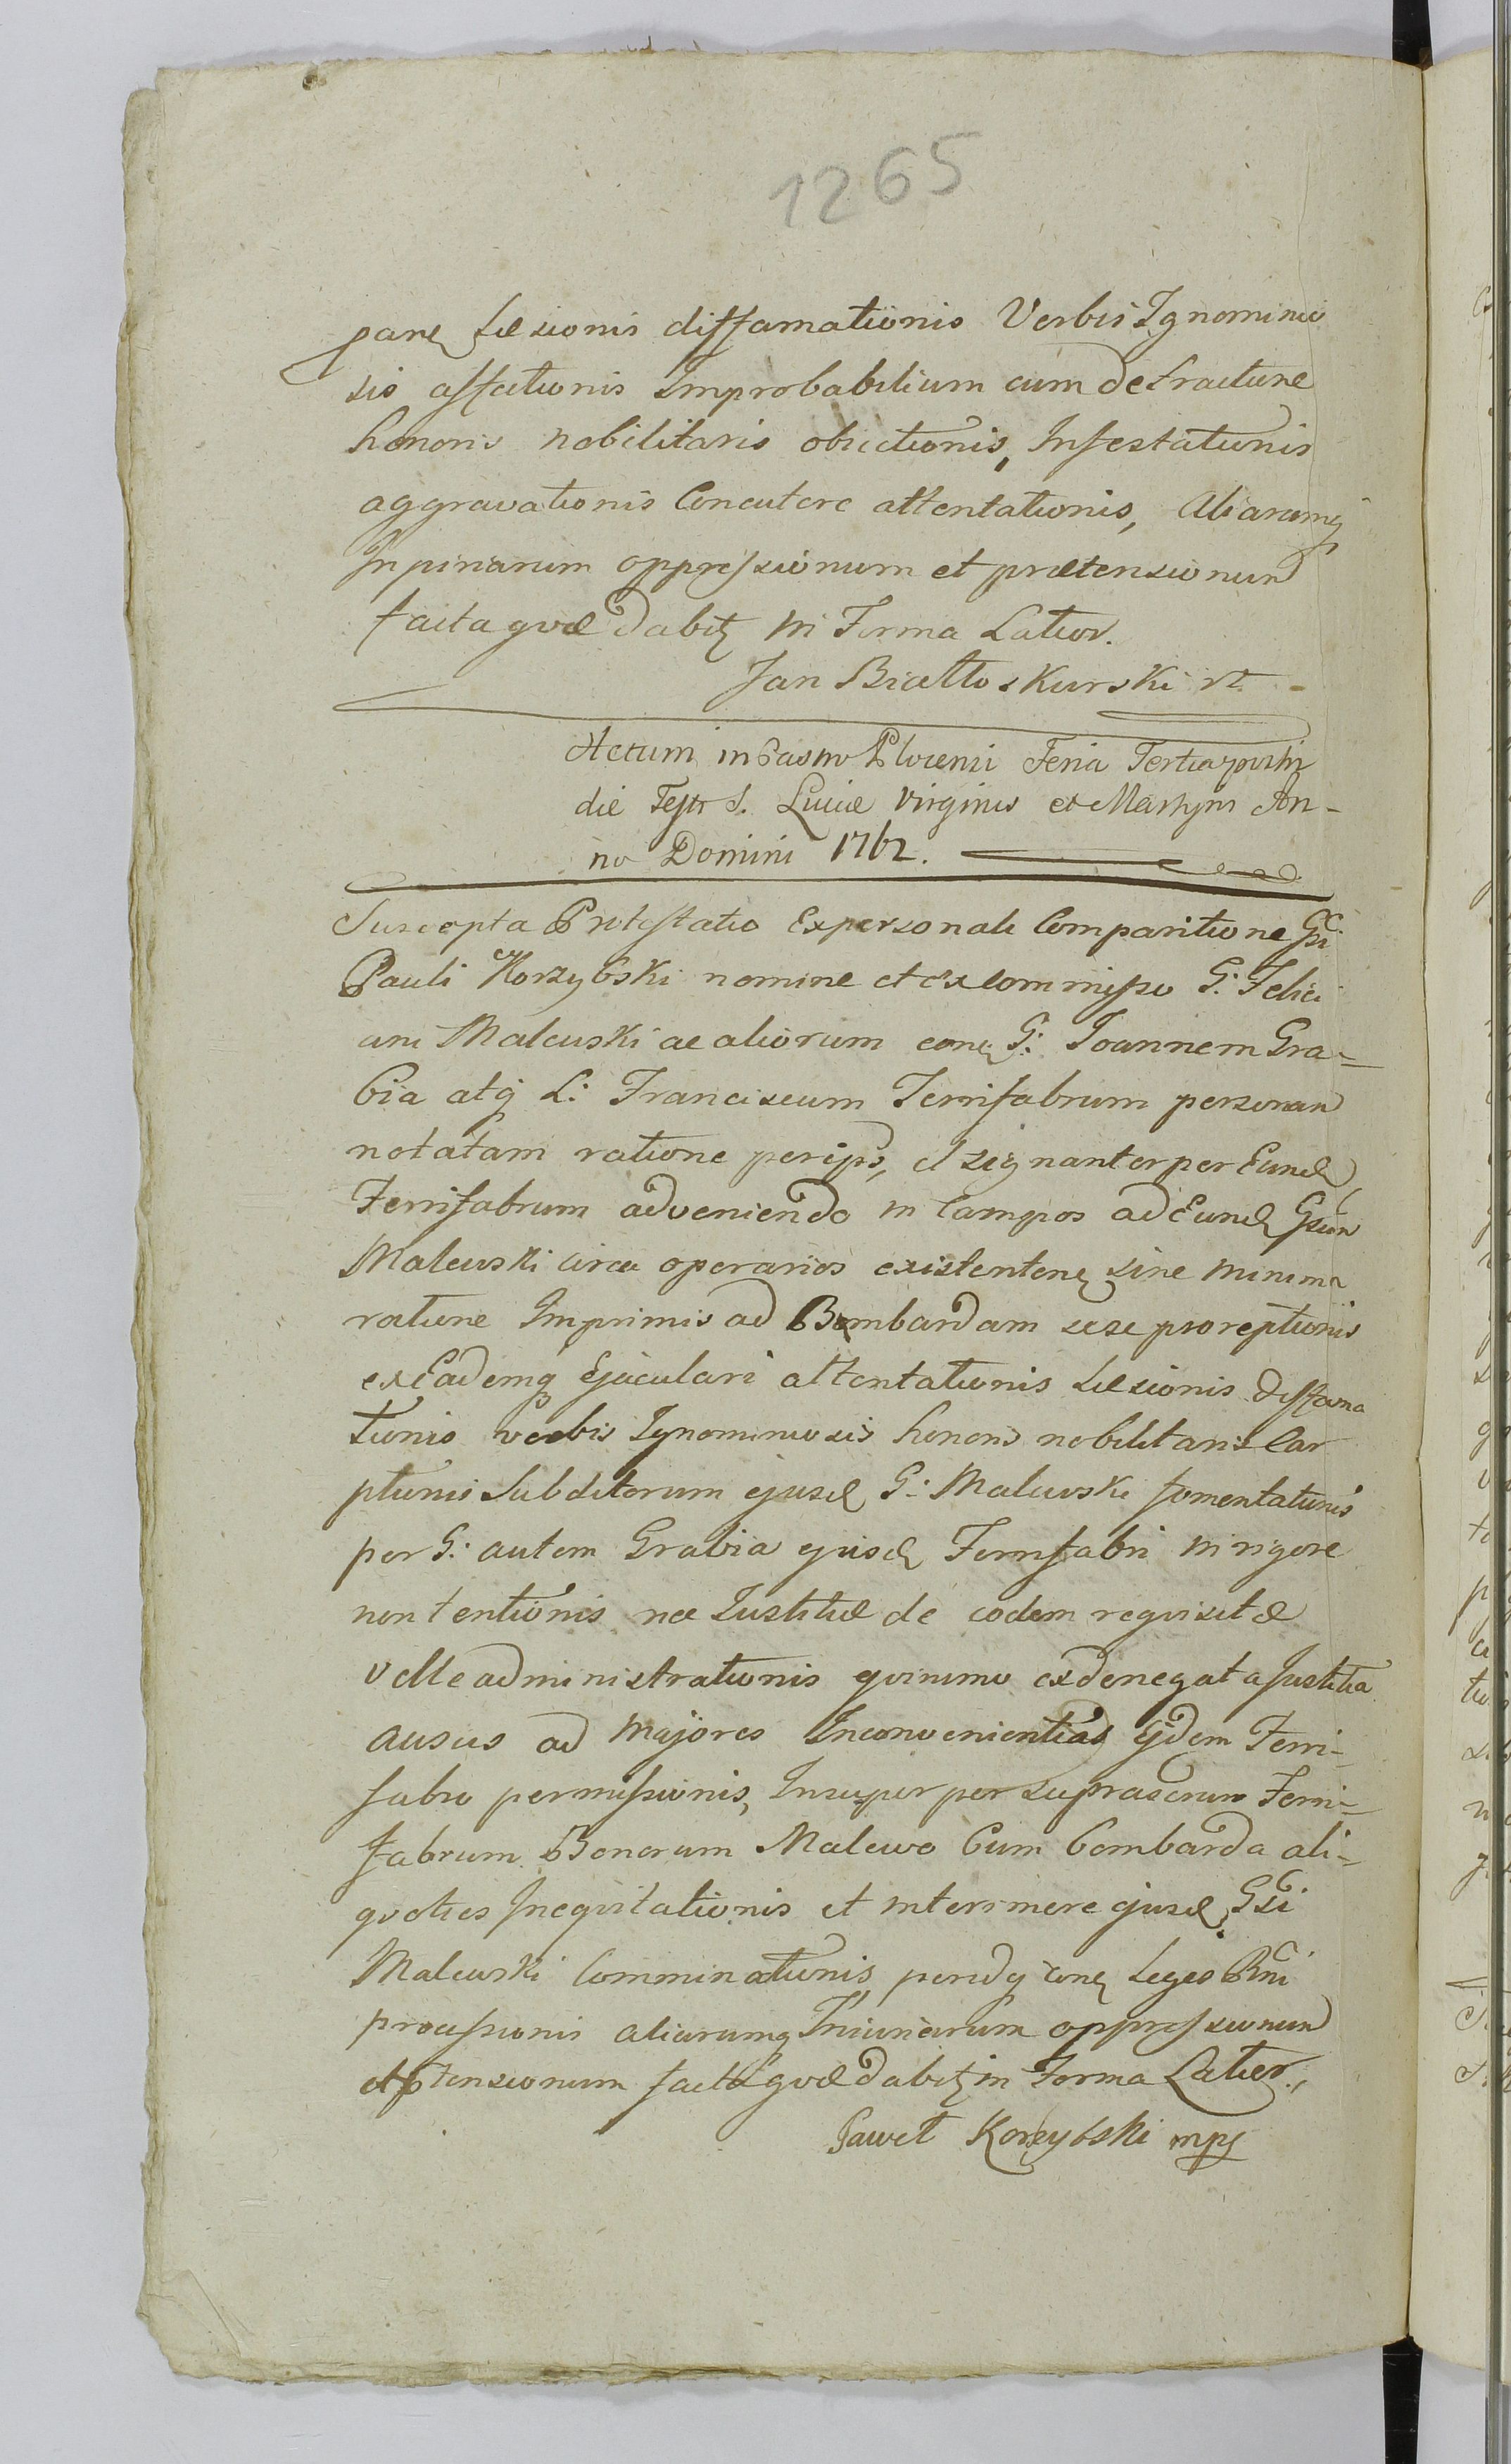 1265
parę Læsionis diffamationis Verbis Ignominio
sis affectionis Improbabilium cum detractione
honoris nobilitaris obiectionis, Infestationis
aggravationis Concutere attentationis, Aliarumq
Injuriarum oppressionum et prætensionum
facta quæ dabitz in Forma Latior.
Jan Białłoskurski
Actum in Castro Plocensi Feria Tertia postri
die Festi S. Luciæ Virginis et Martyris An-
no Domini 1762.
Suscepta Protestatio Ex personali Comparitione Gsi
Pauli Korzybski nomine et ex Commisso G: Felici
ani Malewski ac aliorum conę G: Joannem Gra-
bia atq L: Franciscum Ferrifabrum personan
notatam ratione per ipsos, et signanter per Eund
Ferrifabrum adveniendo in Campos ad Eund Gsum
Malewski circa operarios existentenę sine minima
ratione Imprimis ad Bombardam sese proreptionis
ex Eademq Ejaculari attentationis Læsionis diffama
tionis verbis Ignominiosis honoris nobilitaris Car
ptionis Subditorum ejusd G: Malewski fomentationis
per G: autem Grabia ejusd Ferrifabri in rigore
non tentionis nec Justitiæ de eodem requisitæ
velle administrationis quinimo ex denegata Justitia
ausus ad majores Inconvenientias Ejdem Ferri-
fabro permissionis, Insuper per suprascrum Ferri-
fabrum Bonorum Malewo Cum bombarda ali-
quoties Inequitationis et interimere ejusd Gsi
Malewski Comminationis, peridq conę Leges Rni
processionis aliarumq Iniuriarum oppressionum
et ptensionum facta quæ dabitz in Forma Latior.
Paweł Korzybski mpq